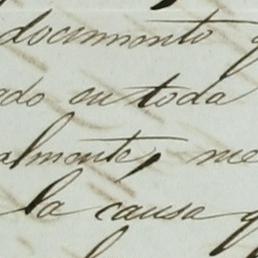 documento q
ado en toda
almente, me
la causa q